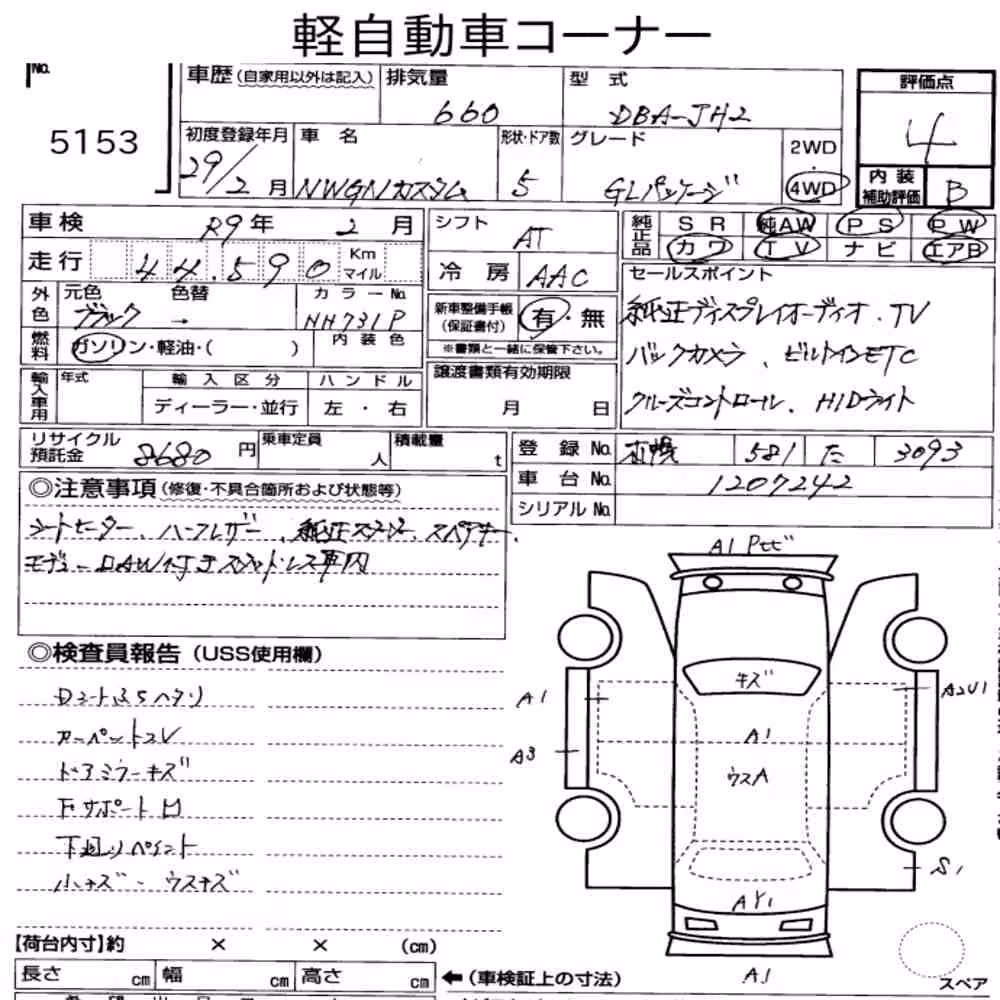 軽自動車コーナー
No. 5153
車歴 (自家用以外は記入) 排気量 660 型式 DBA-JH2
評価点 4
初度登録年月 29/2月 車名 NWGNカスタム 形状・ドア数 5 グレード GLパッケージ 2WD・4WD
内装補助評価 B
車検 R9年 2月
走行 44,590 Km マイル
シフト AT
冷房 AAC
純正品 SR 純AW PS PW
カワ TV ナビ エアB
外色 元色 ブラック 色替 → カラーNo. NH731P
燃料 ガソリン・軽油・( ) 内装色
新車整備手帳(保証書付) 有・無
※書類と一緒に保管下さい。
セールスポイント
純正ディスプレイオーディオ.TV
バックカメラ、ビルトインETC
クルーズコントロール、HIDライト
輸入車用 年式 輸入区分 ハンドル
ディーラー・並行 左・右
譲渡書類有効期限
月 日
リサイクル預託金 8680円 乗車定員 人 積載量 t
登録No. 札幌 581 た 3093
車台No. 1207242
シリアルNo.
◎注意事項 (修復・不具合箇所および状態等)
シートヒーター、ハーフレザー、純正スターター、スペアキー、
モデューロAW付きスタッドレス車内
◎検査員報告 (USS使用欄)
Dシート
カーペットコレ
ドアミラーキズ
Fサポート
下廻りペイント
小キズ・ウスキズ
A1 Pセビ
キズ
A1
A2U1
A1
A3
ウスA
S1
AY1
A1
スペア
【荷台内寸】約 × × (cm)
長さ cm 幅 cm 高さ cm ←(車検証上の寸法)